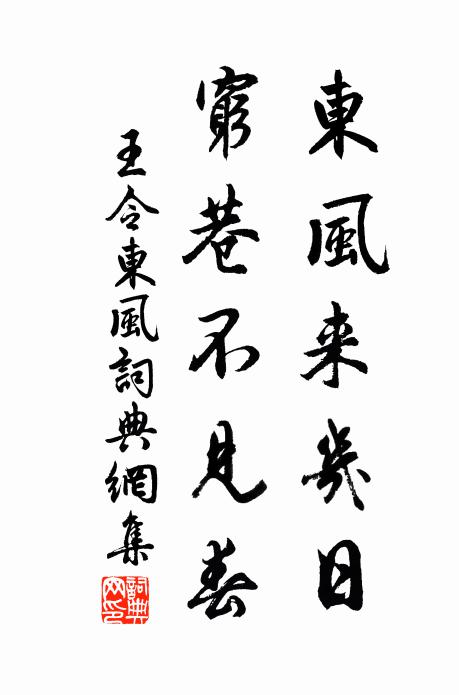 東風来幾日
窮巷不見春
王令東風詞典網集
詞典網印